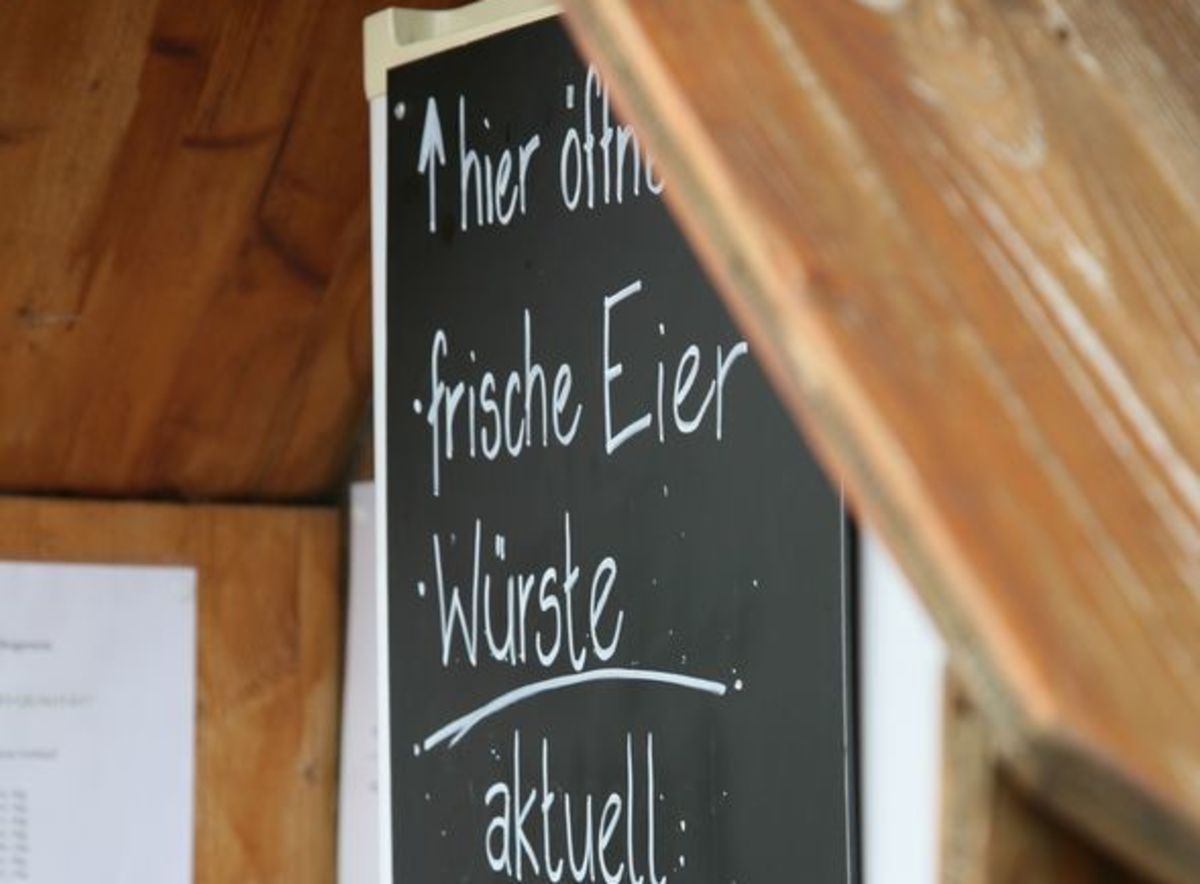 ↑ hier öffne
· frische Eier
· Würste
aktuell: